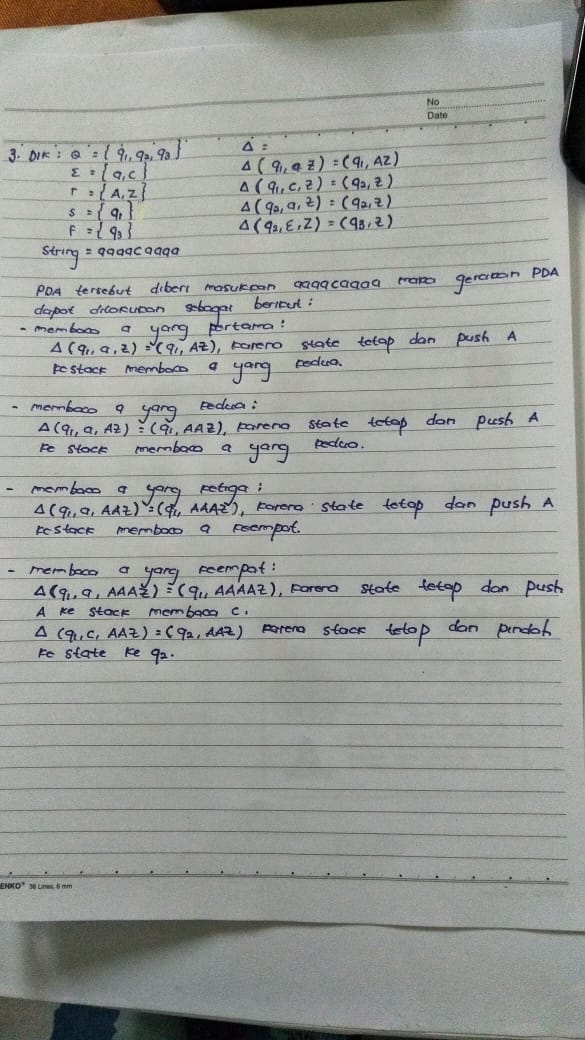 No
Date
3. DIK : Q = { q1, q2, q3 }
Σ = { a, c }
Γ = { A, Z }
S = { q1 }
F = { q3 }
String = aaaacaaaa
Δ =
Δ ( q1, a, z ) = (q1, AZ)
Δ ( q1, c, z ) = (q2, z)
Δ ( q2, a, z ) = (q2, z)
Δ (q2, ε, z) = (q3, z)
PDA tersebut diberi masukkan aaaacaaaa maka gerakan PDA
dapat dilakukan sebagai berikut :
- membaca a yang pertama :
Δ (q1, a, z) = (q1, AZ), karena state tetap dan push A
ke stack membaca a yang kedua.
- membaca a yang kedua :
Δ (q1, a, AZ) = (q1, AAZ), karena state tetap dan push A
ke stack membaca a yang kedua.
- membaca a yang ketiga :
Δ (q1, a, AAZ) = (q1, AAAZ), karena state tetap dan push A
ke stack membaca a keempat.
- membaca a yang keempat :
Δ (q1, a, AAAZ) = (q1, AAAAZ), karena state tetap dan push
A ke stack membaca c.
Δ (q1, c, AAZ) = (q2, AAZ) karena stack tetap dan pindah
ke state ke q2.
ENKO® 36 Lines, 6 mm